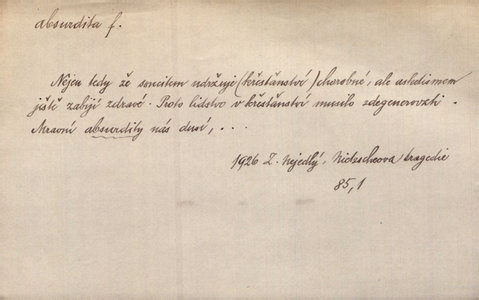 absurdita f.
Nejen tedy že soucitem udržuje (křesťanství) chorobné, ale asketismem
ještě zabíjí zdravé. Proto lidstvo v křesťanství musilo zdegenerovati.
Mravní absurdity nás dusí, . . .
1926 Z. Nejedlý, Nietzscheova tragedie
85,1